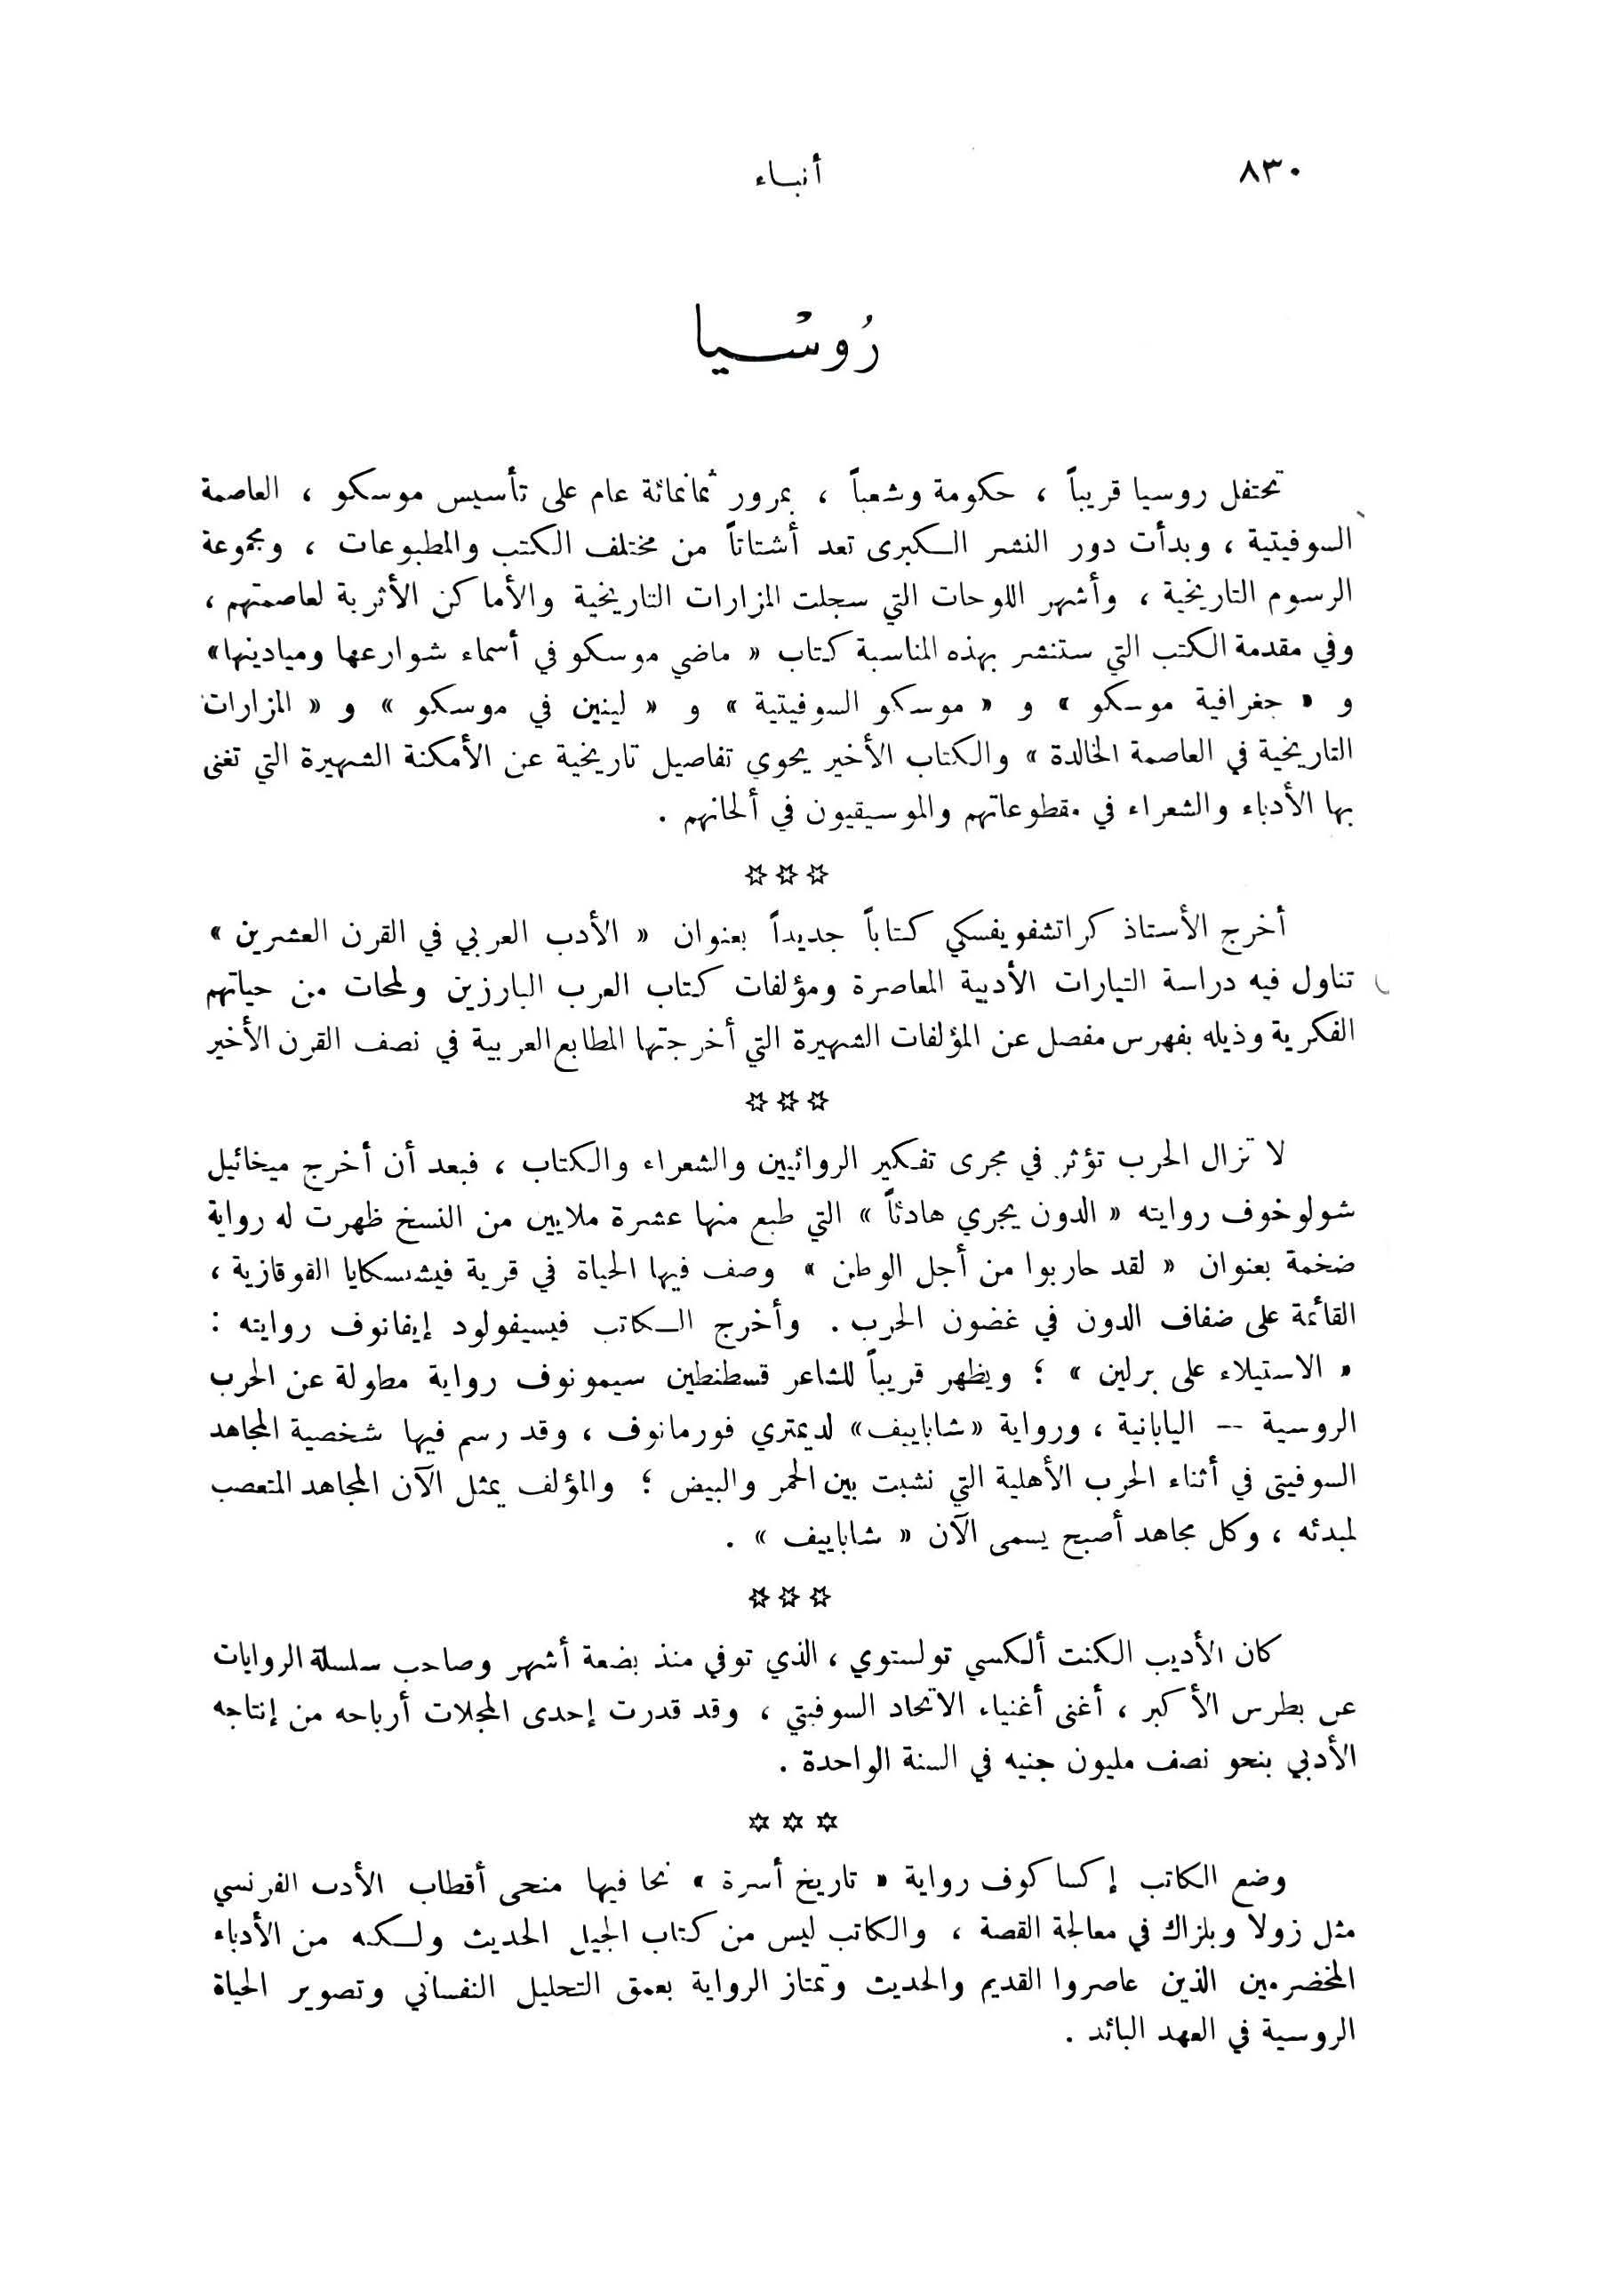 ٨٣٠
أنباء
رُوسْيا
تحتفل روسيا قريباً ، حكومة وشعباً ، بمرور ثمانمائة عام على تأسيس موسكو ، العاصمة
السوفيتية ، وبدأت دور النشر الكبرى تعد أشتاتاً من مختلف الكتب والمطبوعات ، ومجموعة
الرسوم التاريخية ، وأشهر اللوحات التي سجلت المزارات التاريخية والأماكن الأثرية لعاصمتهم ،
وفي مقدمة الكتب التي ستنشر بهذه المناسبة كتاب « ماضي موسكو في أسماء شوارعها وميادينها»
و « جغرافية موسكو » و « موسكو السوفيتية » و « لينين في موسكو » و « المزارات
التاريخية في العاصمة الخالدة » والكتاب الأخير يحوي تفاصيل تاريخية عن الأمكنة الشهيرة التي تغنى
بها الأدباء والشعراء في مقطوعاتهم والموسيقيون في ألحانهم .
☆☆☆
أخرج الأستاذ كراتشفويفسكي كتاباً جديداً بعنوان « الأدب العربي في القرن العشرين »
تناول فيه دراسة التيارات الأدبية المعاصرة ومؤلفات كتاب العرب البارزين ولمحات من حياتهم
الفكرية وذيله بفهرس مفصل عن المؤلفات الشهيرة التي أخرجتها المطابع العربية في نصف القرن الأخير
☆☆☆
لا تزال الحرب تؤثر في مجرى تفكير الروائيين والشعراء والكتاب ، فبعد أن أخرج ميخائيل
شولوخوف روايته « الدون يجري هادئاً » التي طبع منها عشرة ملايين من النسخ ظهرت له رواية
ضخمة بعنوان « لقد حاربوا من أجل الوطن » وصف فيها الحياة في قرية فيشسكايا القوقازية ،
القائمة على ضفاف الدون في غضون الحرب . وأخرج الكاتب فيسيفولود إيفانوف روايته :
« الاستيلاء على برلين » ؛ ويظهر قريباً للشاعر قسطنطين سيمونوف رواية مطولة عن الحرب
الروسية -- اليابانية ، ورواية «شاباييف» لديمتري فورمانوف ، وقد رسم فيها شخصية المجاهد
السوفيتي في أثناء الحرب الأهلية التي نشبت بين الحمر والبيض ؛ والمؤلف يمثل الآن المجاهد المتعصب
لمبدئه ، وكل مجاهد أصبح يسمى الآن « شاباييف » .
☆☆☆
كان الأديب الكنت ألكسي تولستوي ، الذي توفي منذ بضعة أشهر وصاحب سلسلة الروايات
عن بطرس الأكبر ، أغنى أغنياء الاتحاد السوفيتي ، وقد قدرت إحدى المجلات أرباحه من إنتاجه
الأدبي بنحو نصف مليون جنيه في السنة الواحدة .
☆☆☆
وضع الكاتب إكساكوف رواية « تاريخ أسرة » نحا فيها منحى أقطاب الأدب الفرنسي
مثل زولا وبلزاك في معالجة القصة ، والكاتب ليس من كتاب الجيل الحديث ولكنه من الأدباء
المخضرمين الذين عاصروا القديم والحديث وتمتاز الرواية بعمق التحليل النفساني وتصوير الحياة
الروسية في العهد البائد .